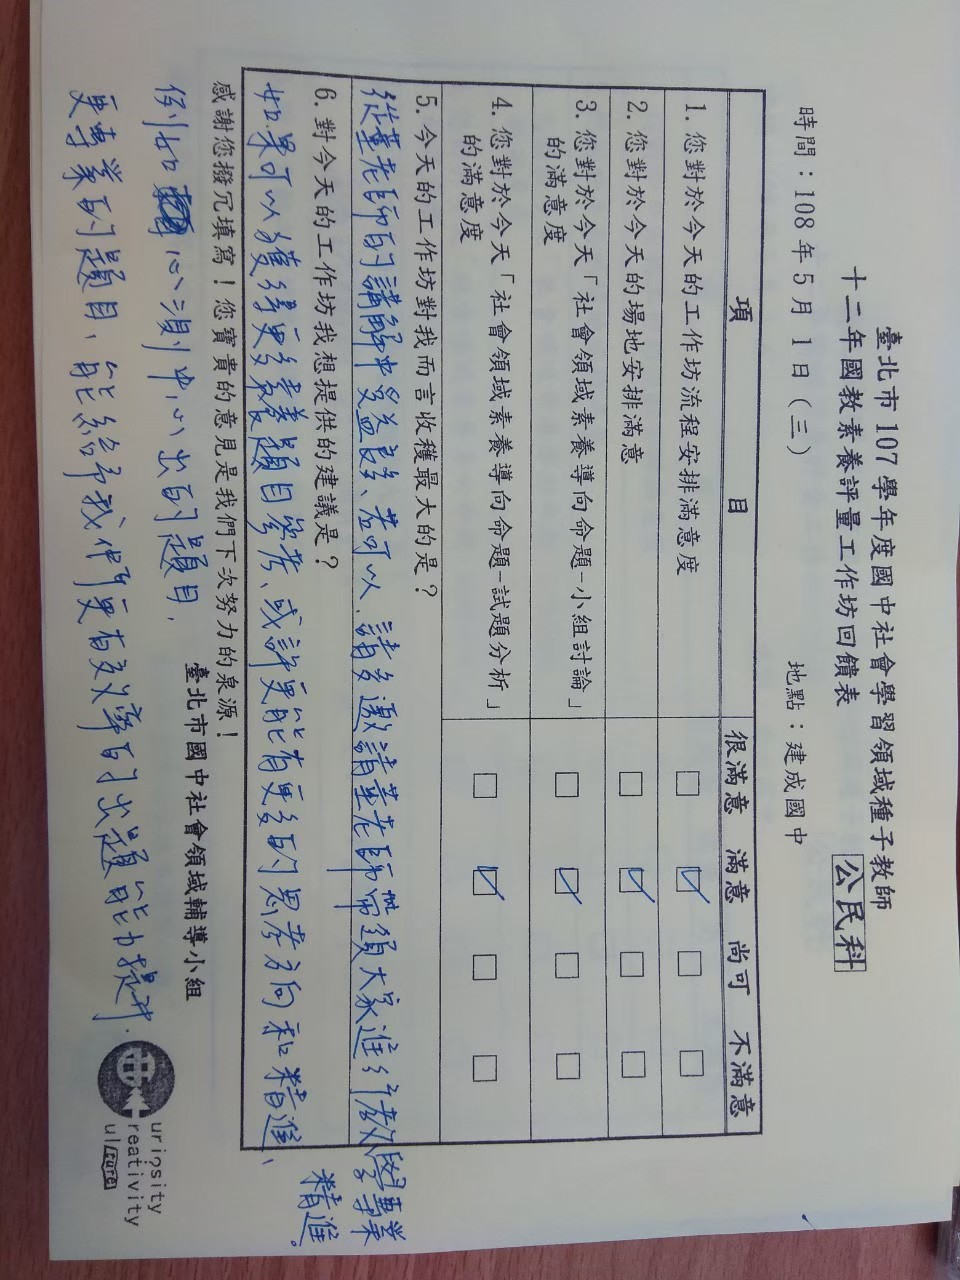 臺北市107學年度國中社會學習領域種子教師
十二年國教素養評量工作坊回饋表 公民科
時間：108年5月1日(三) 地點：建成國中
項 目 很滿意 滿意 尚可 不滿意
1. 您對於今天的工作坊流程安排滿意度 □ ☑ □ □
2. 您對於今天的場地安排滿意 □ ☑ □ □
3. 您對於今天「社會領域素養導向命題-小組討論」
的滿意度 □ ☑ □ □
4. 您對於今天「社會領域素養導向命題-試題分析」
的滿意度 □ ☑ □ □
5. 今天的工作坊對我而言收穫最大的是？
從董老師的講解中受益良多、若可以、請多邀請董老師帶領大家進行教學專業
精進。
6. 對今天的工作坊我想提供的建議是？
如果可以獲得更多素養題目參考、或許更能有更多的思考方向和精進、
感謝您撥冗填寫！您寶貴的意見是我們下次努力的泉源！
臺北市國中社會領域輔導小組
例如 心測中心出的題目、
更專業的題目、能給予我們更有效率的出題能力提升.
uriosity
reativity
ul ture